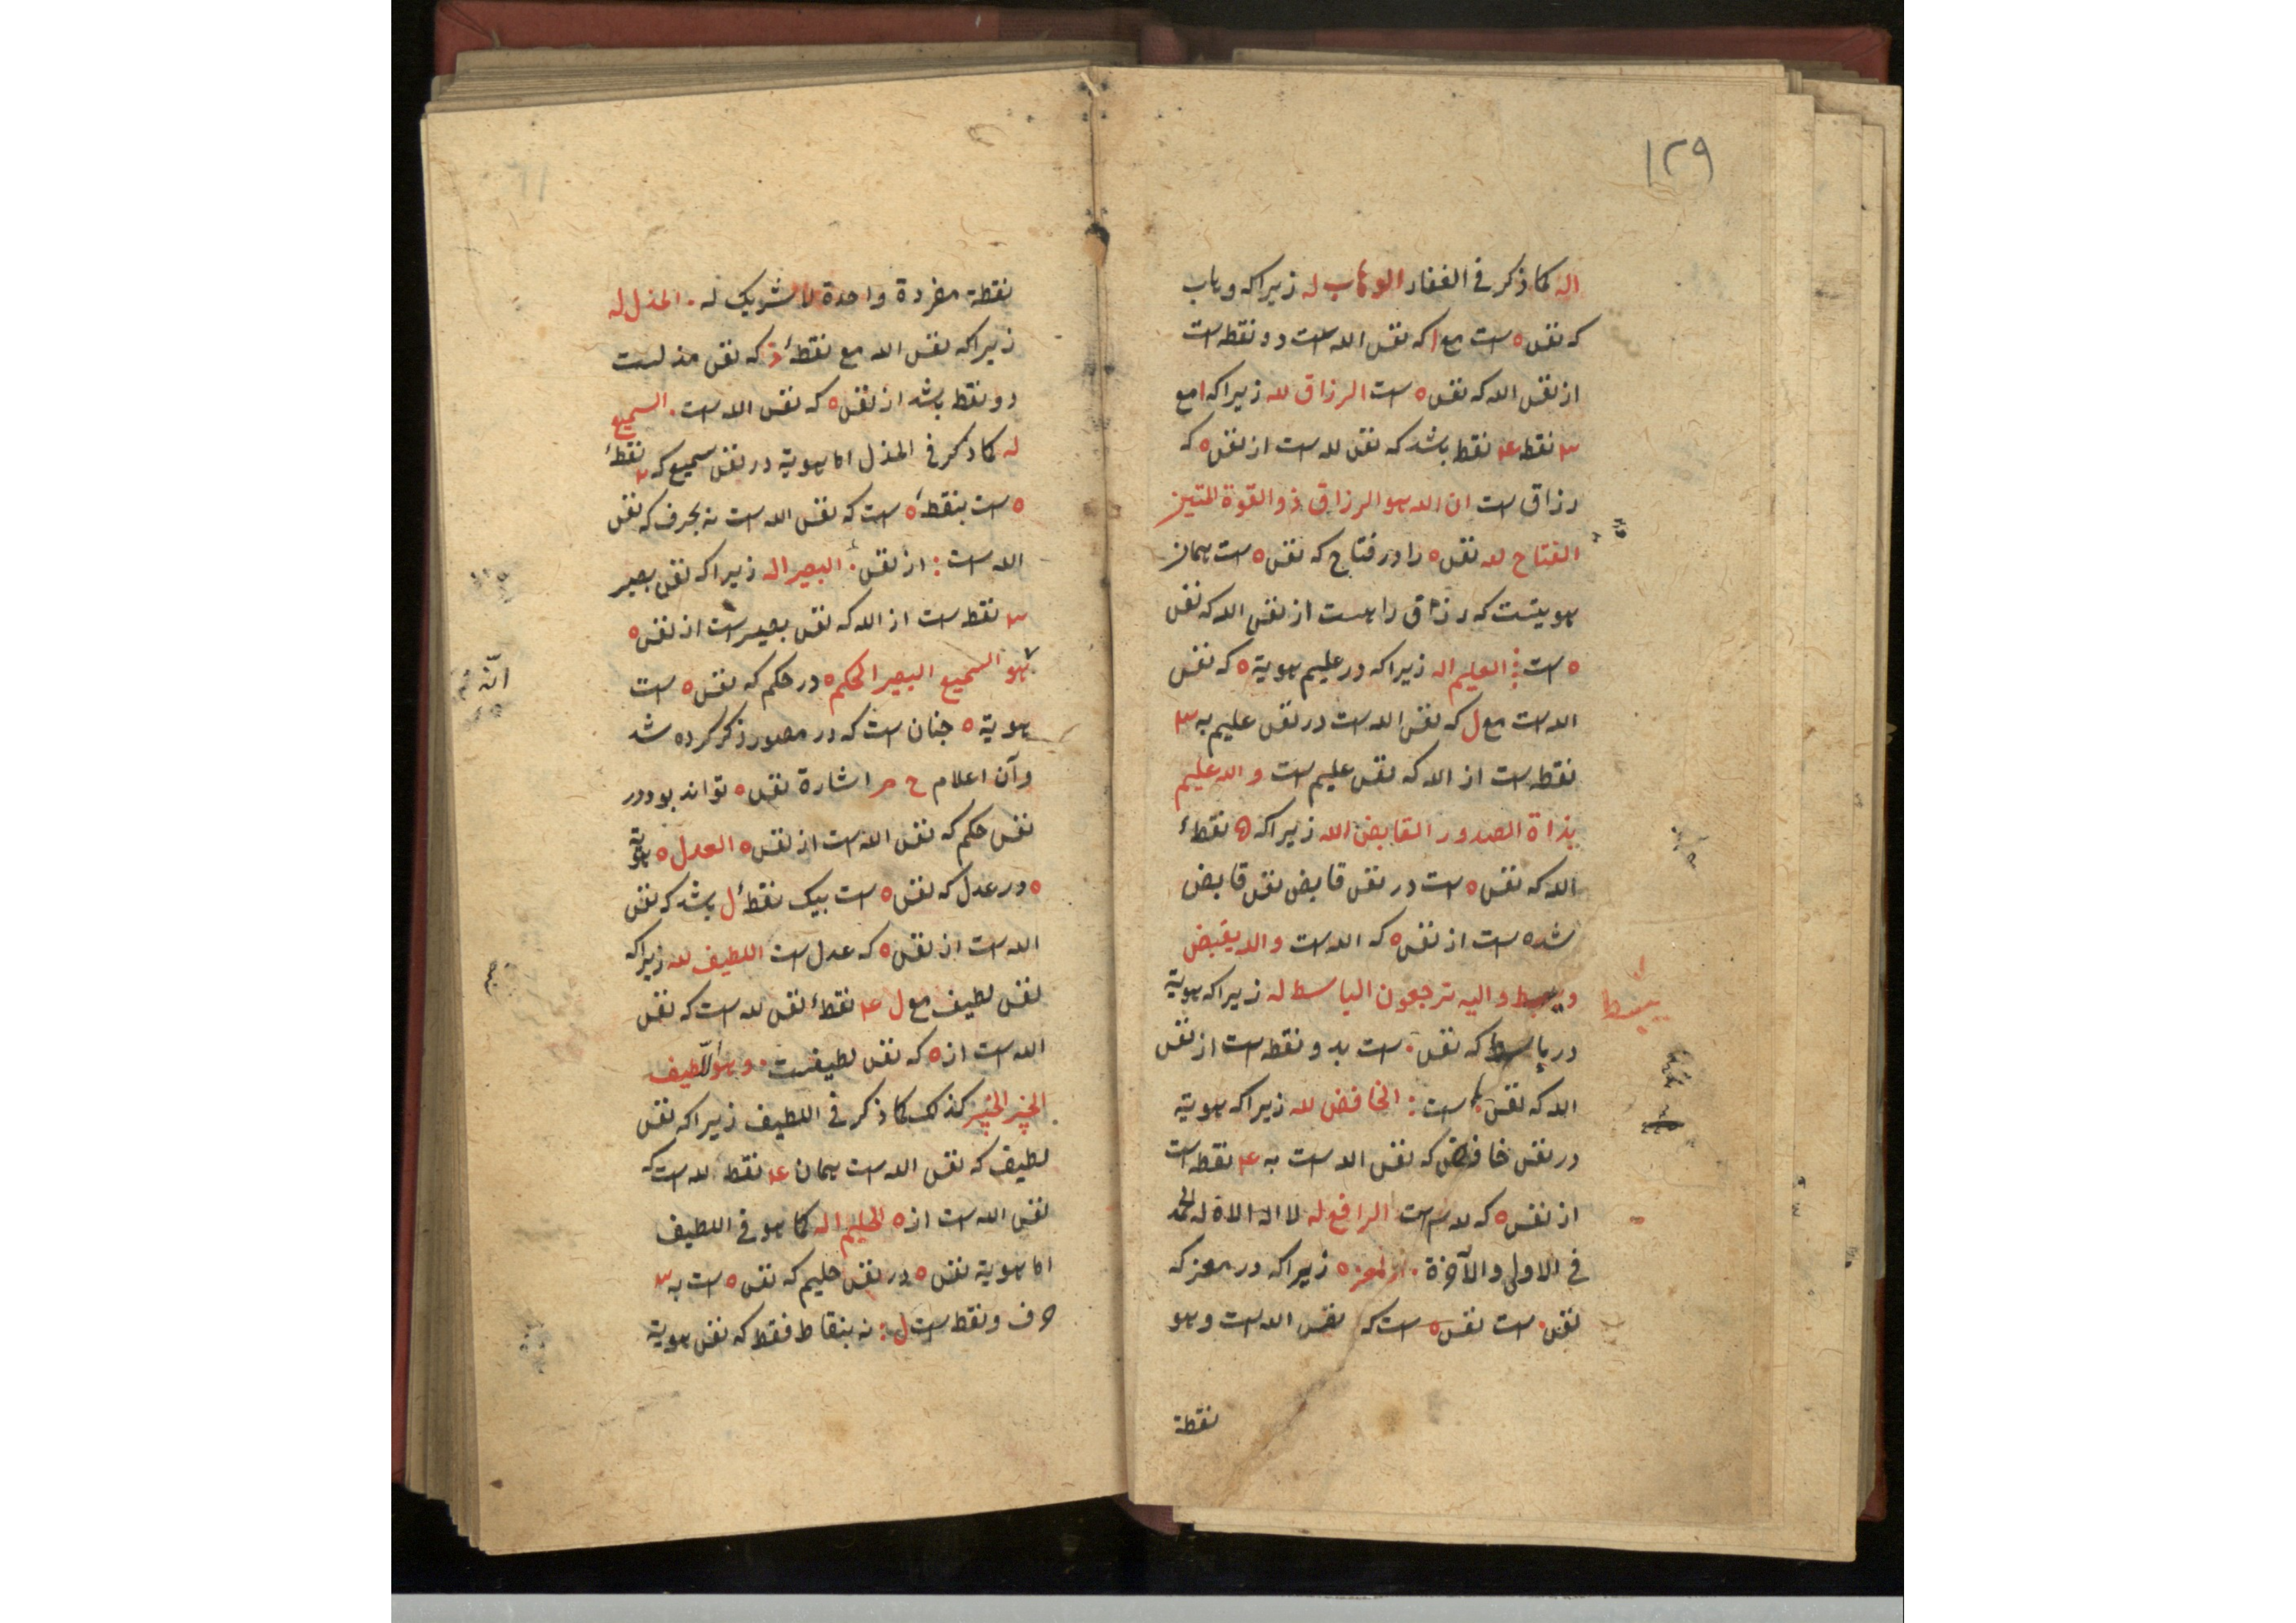 ١٢٩
اله كما ذكر فی الغفار الوهاب له زیراکه وهاب
که نفس ه است مع ا که نفس الله است دو نقطه است
از نفس الله که نفس ه است الرزاق لله زیراکه ا مع
٣ نقطه ٤ نقطه باشد که نفس لله است از نفس ه که
رزاق است ان الله هو الرزاق ذو القوة المتین
الفتاح لله نفس ه را در فتاح که نفس ه است همان
هویتست که رزاق را هست از نفس الله که نفس
ه است : العلیم اله زیراکه در علیم هویة ه که نفس
الله است مع ل که نفس الله است در نفس علیم به ٣
نقطه است از الله که نفس علیم است و الله علیم
بذاة الصدور القابض الله زیراکه ه نقطهٔ
الله که نفس ه است در نفس قابض نفس قابض
شده است از نفس ه که الله است والله یقبض
ویبسط والیه ترجعون الباسط له زیراکه هویة
یبسط
در باسط که نفس . است بدو نقطه است از نفس
الله که نفس . است : الخافض لله زیراکه هویة
در نفس خافض که نفس الله است به ٤ نقطه است
از نفس ه که لله است الرافع له لا اله الا ه له الحمد
فی الاولی والآخرة . المعز ه زیراکه در معز که
نفس . است نفس ه است که نفس الله است وهو
نقطة
نقطة مفردة واحدة لا شریک له . المذل له
زیراکه نفس الله مع نقطهٔ ذ که نفس مذلست
دو نقطه باشد از نفس ه که نفس الله است . السمیع
له کما ذکر فی المذل اما هویة در نفس سمیع که ٣ نقطهٔ
ه است بنقطهٔ ه است که نفس الله است نه بحرف که نفس
الله است : از نفس . البصیر اله زیراکه نفس بصیر
٣ نقطه است از الله که نفس بصیر است از نفس ه
هو السمیع البصیر الحکم ه در حکم که نفس ه است
انّه
هویة ه چنان است که در مصور ذکر کرده شد
وآن اعلام ح م اشارة نفس ه تواند بود در
نفس حکم که نفس الله است از نفس ه العدل ه هویة
ه در عدل که نفس ه است بیک نقطهٔ ل باشد که نفس
الله است از نفس ه که عدل است اللطیف لله زیراکه
نفس لطیف مع ل ٤ نقطهٔ نفس لله است که نفس
الله است از ه که نفس لطیفست . وهو اللّطیف
الخبیر الخبیر کذلک کما ذکر فی اللطیف زیراکه نفس
لطیف که نفس الله است همان ٤ نقطه لله است که
نفس الله است از ه الحلیم اله کما هو فی اللطیف
اما هویة نفس ه در نفس حلیم که نفس ه است به ٣
حرف ونقطه است ل : نه بنقاط فقط که نفس هویة